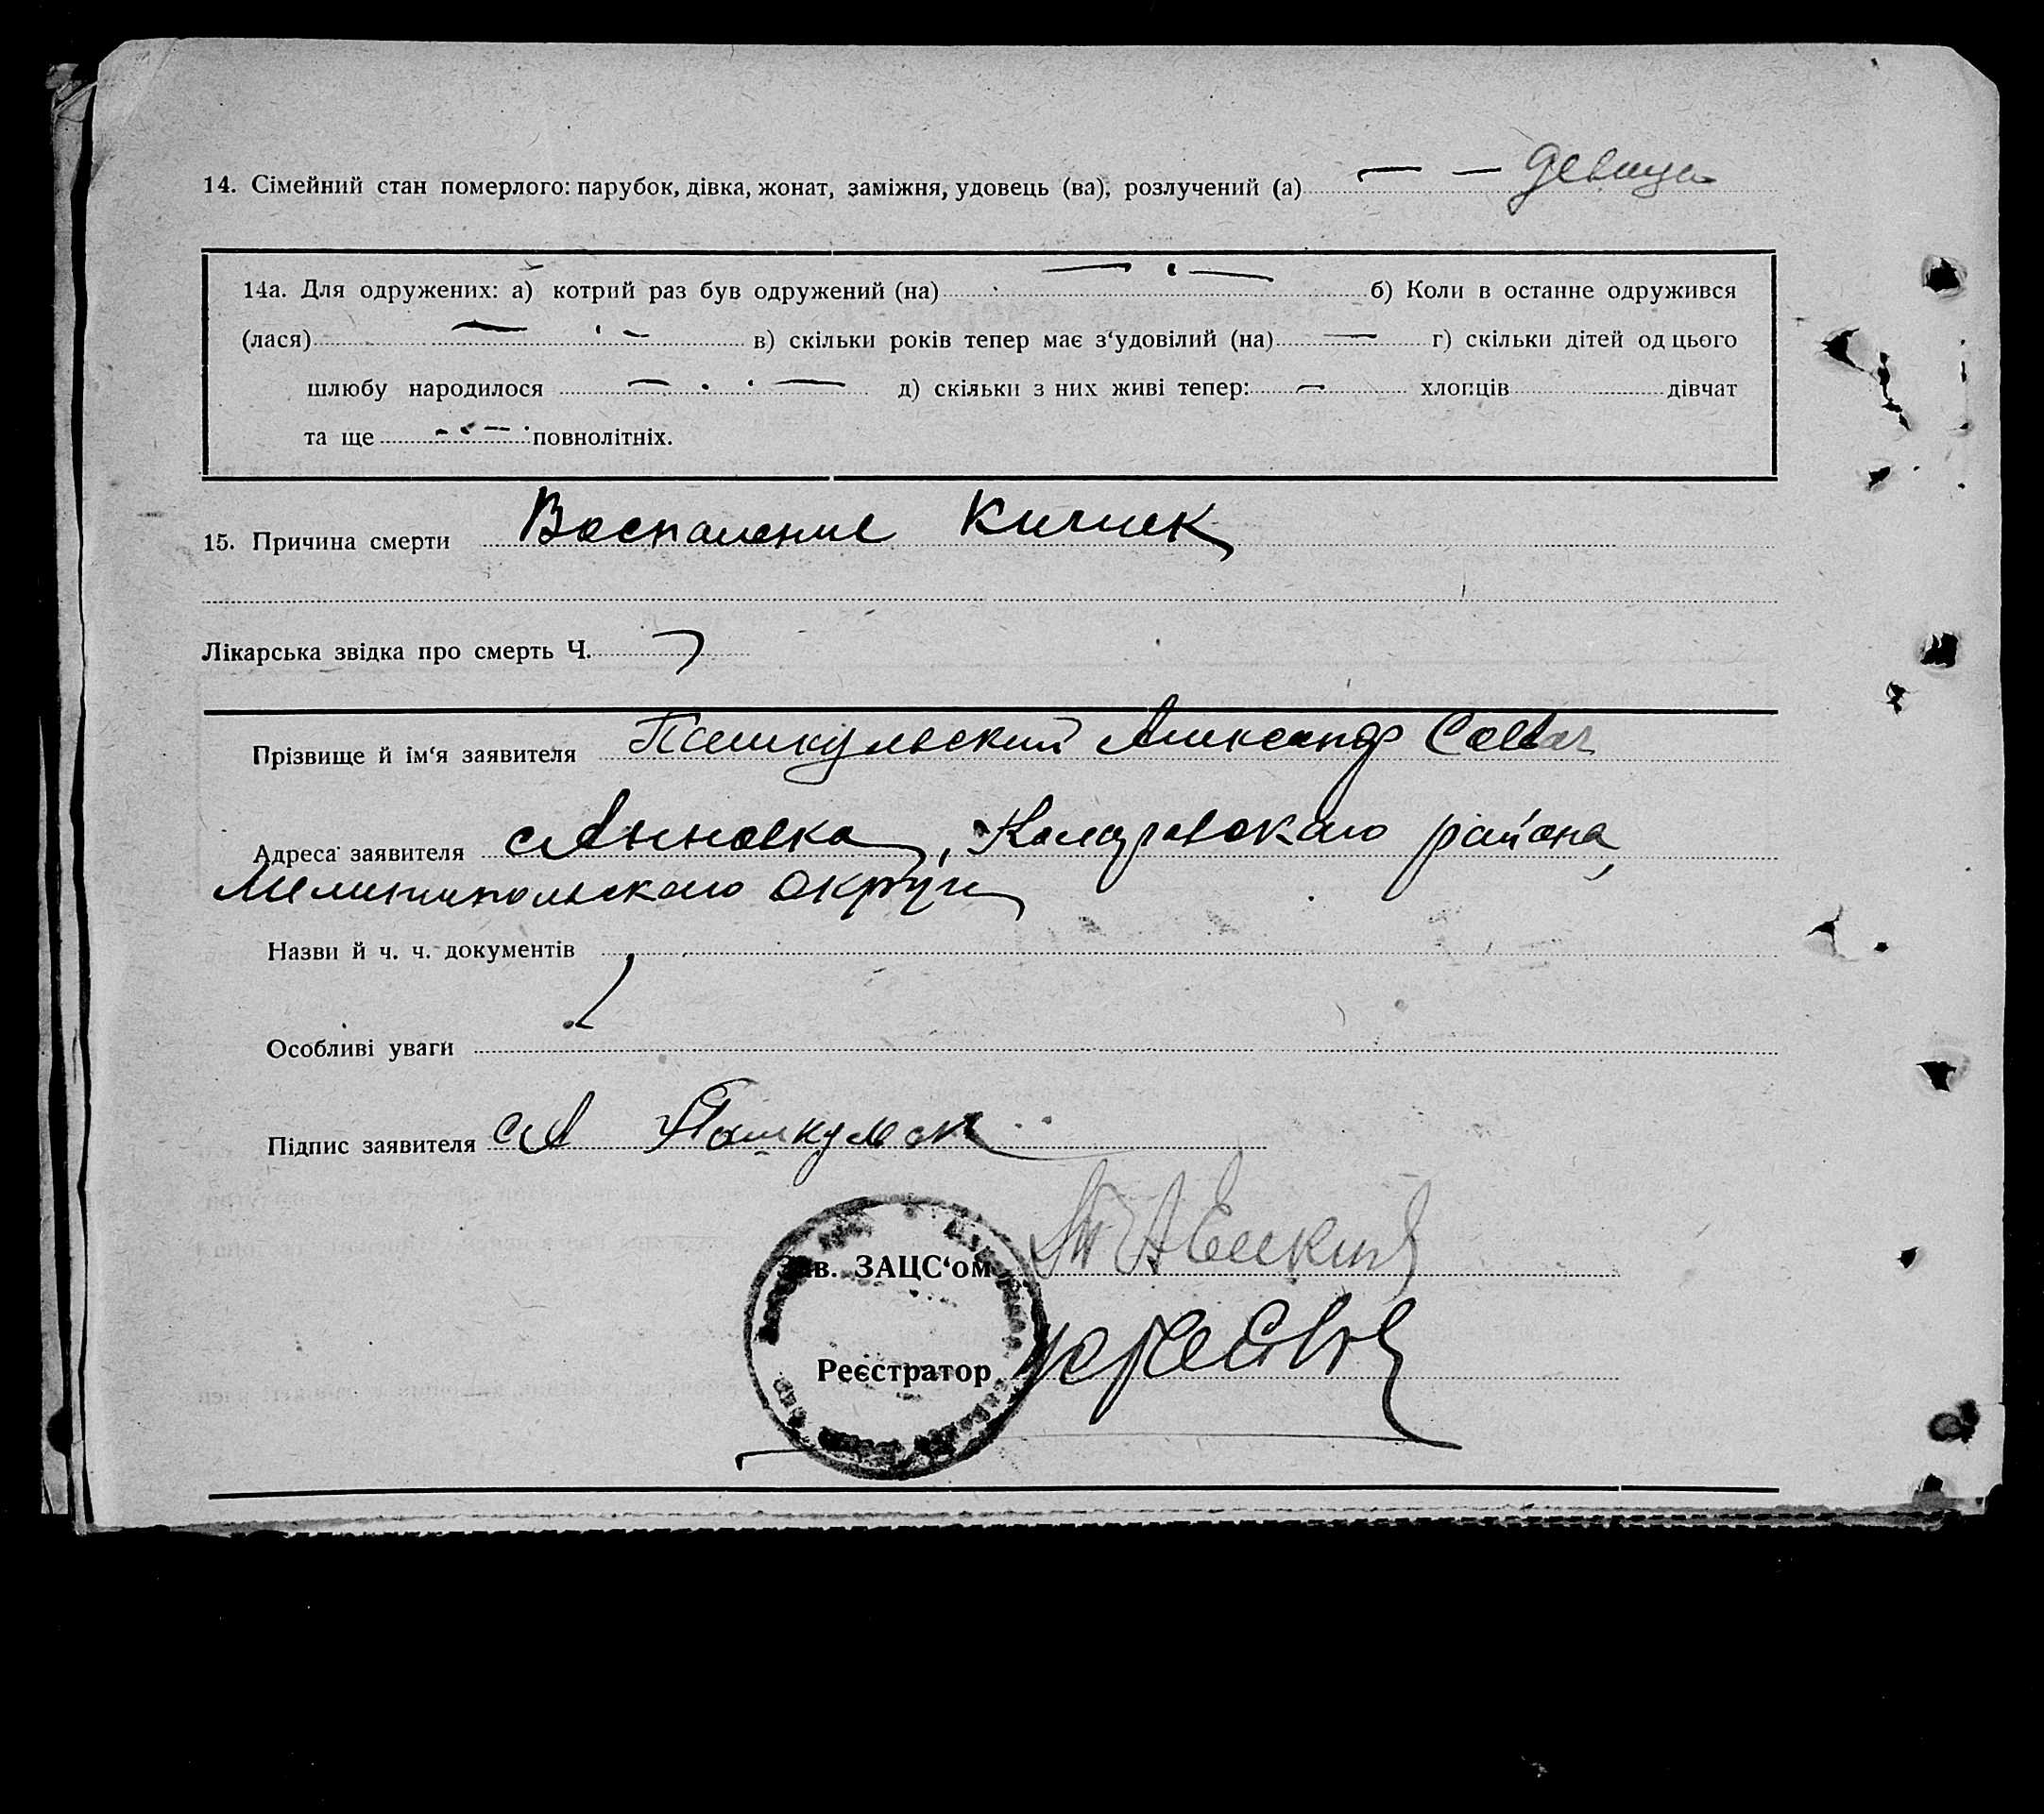 14. Сімейний стан померлого: парубок, дівка, жонат, заміжня, удовець (ва), розлучений (а) — — девица
14а. Для одружених: а) котрий раз був одружений (на) б) Коли в останне одружився
(лася) в) скільки років тепер має з‘удовілий (на) — г) скільки дітей од цього
шлюбу народилося д) скільки з них живі тепер: — хлопців дівчат
та ще повнолітніх.
15. Причина смерти Воспаление Кишек
Лікарська звідка про смерть Ч.
Прізвище й ім‘я заявителя Пашкульский Александр
Адреса заявителя с Анновка, района,
Мелитопольского округи
Назви й ч. ч. документів
Особливі уваги
Підпис заявителя А Пашкульск
Зав. ЗАЦС‘ом
Реєстратор